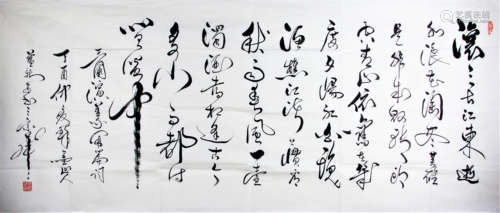 滚滚长江东逝
水浪花淘尽英雄
是非成败转头
空青山依旧在几
度夕阳红白发
渔樵江渚上惯看
秋月春风一壶
浊酒喜相逢古今
多少事都付
笑谈中
三国演义开篇词
丁酉仲